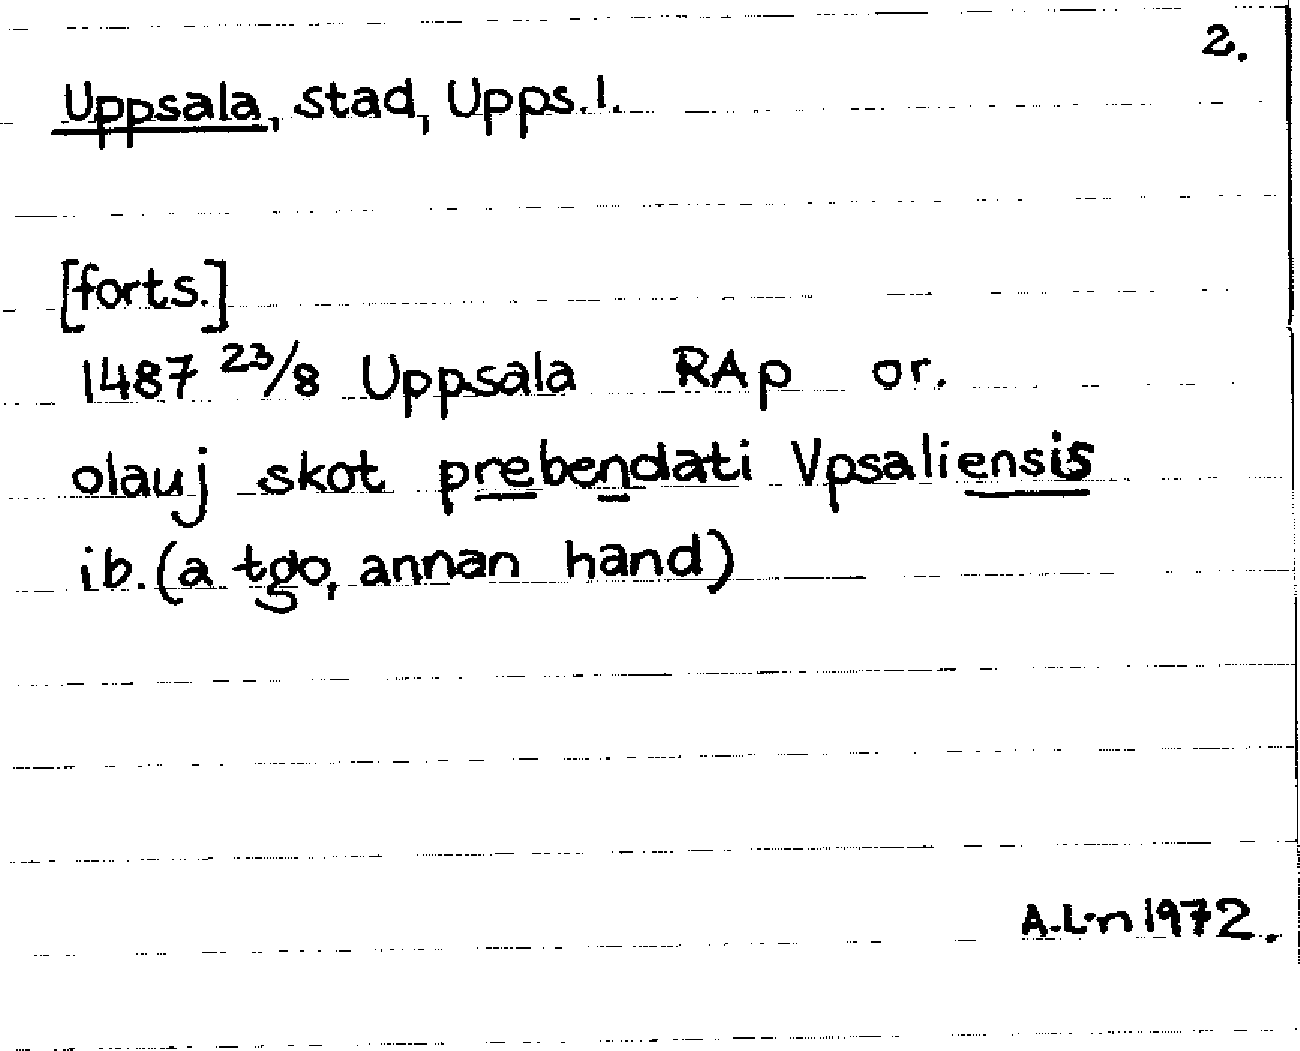 2.
Uppsala, stad, Upps.l.
[forts.]
1487 23/8 Uppsala RAp or.
olauj skot prebendati Vpsaliensis
ib. (a tgo, annan hand)
A.L-n 1972.